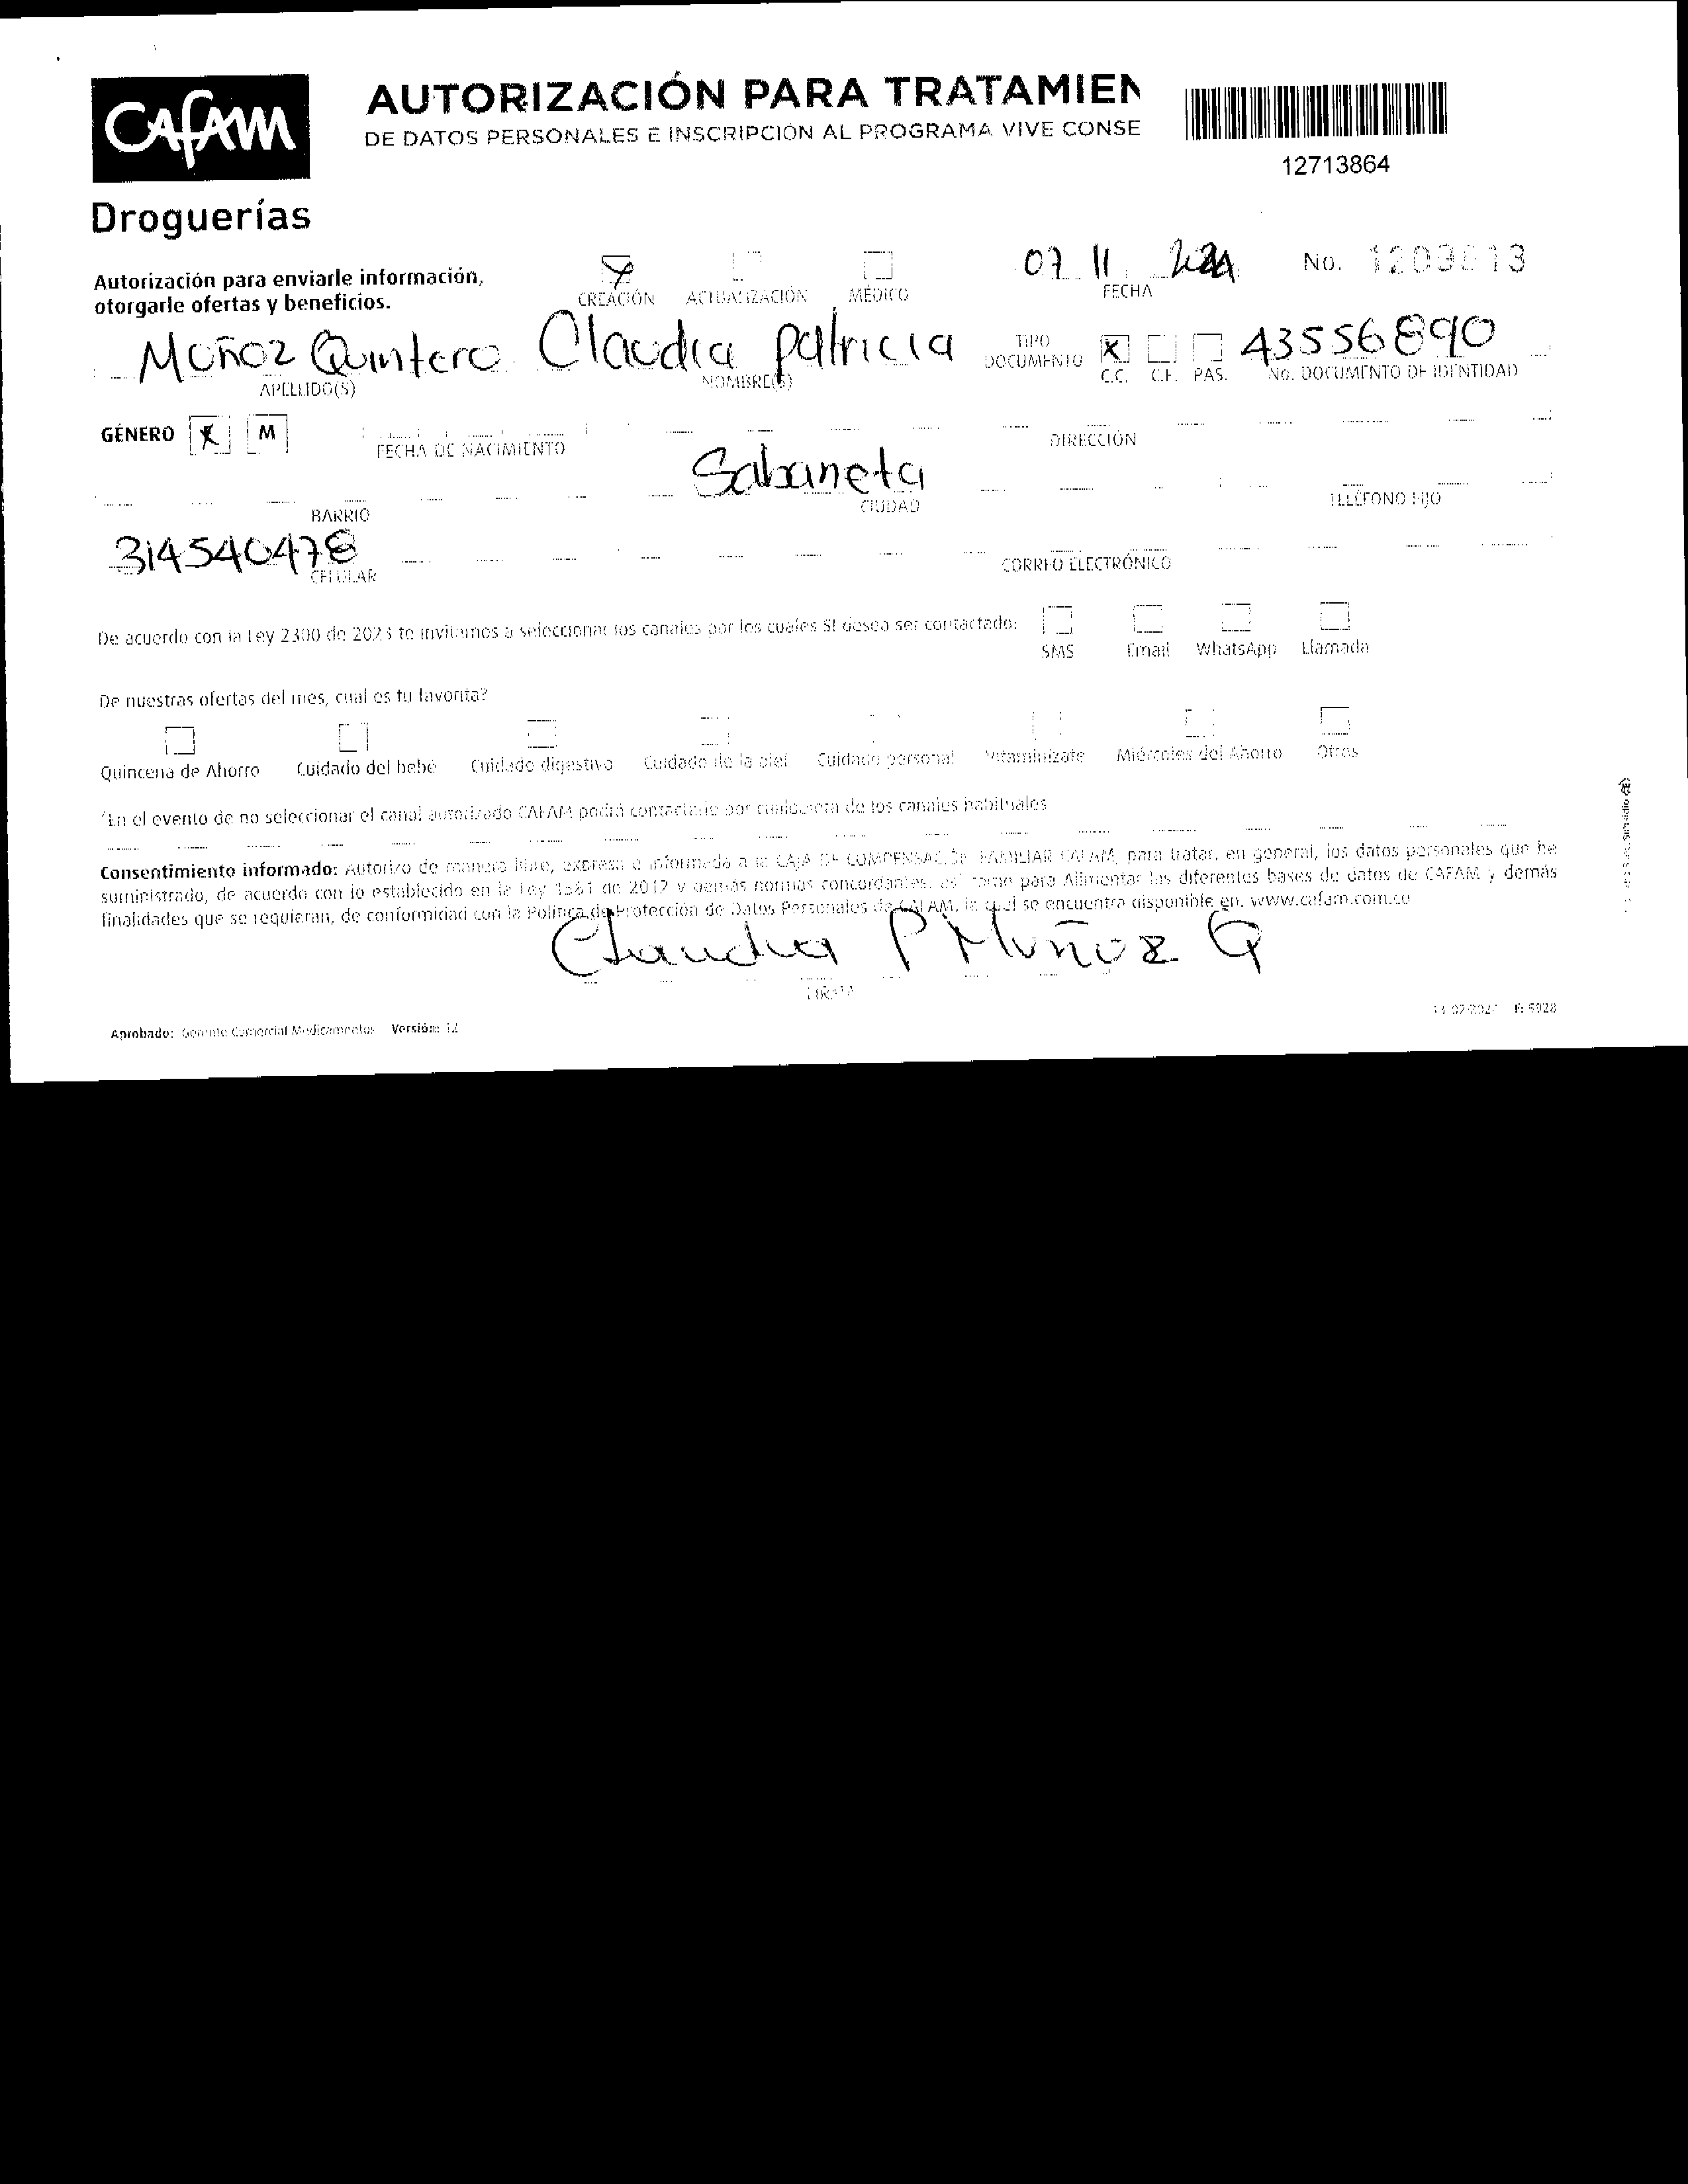 CAFAM
Droguerías
AUTORIZACIÓN PARA TRATAMIEN
DE DATOS PERSONALES E INSCRIPCIÓN AL PROGRAMA VIVE CONSE
12713864
Autorización para enviarle información,
otorgarle ofertas y beneficios.
CREACIÓN ACTUALIZACIÓN MÉDICO
07 11 2024
FECHA
No.
Muñoz Quintero Claudia Patricia
APELLIDO(S) NOMBRE(S)
TIPO
DOCUMENTO
X
C.C. C.E. PAS.
43556890
NO. DOCUMENTO DE IDENTIDAD
GÉNERO X M
FECHA DE NACIMIENTO
DIRECCIÓN
Sabaneta
BARRIO CIUDAD TELÉFONO FIJO
314540478
CELULAR CORREO ELECTRÓNICO
De acuerdo con la Ley 2300 de 2023 te invitamos a seleccionar los canales por los cuales SI desea ser contactado:
SMS Email WhatsApp Llamada
De nuestras ofertas del mes, cual es tu favorita?
Quincena de Ahorro Cuidado del bebé Cuidado digestivo Cuidado de la piel Cuidado personal Vitaminízate Miércoles del Ahorro Otros
*En el evento de no seleccionar el canal autorizado CAFAM podrá contactarlo por cualquiera de los canales habituales
Consentimiento informado: Autorizo de manera libre, expresa e informada a la CAJA DE COMPENSACIÓN FAMILIAR CAFAM, para tratar, en general, los datos personales que he
suministrado, de acuerdo con lo establecido en la Ley 1581 de 2012 y demás normas concordantes, así como para Alimentar las diferentes bases de datos de CAFAM y demás
finalidades que se requieran, de conformidad con la Política de Protección de Datos Personales de CAFAM, la cual se encuentra disponible en. www.cafam.com.co
Claudia P Muñoz Q
FIRMA
Aprobado: Gerente Comercial Medicamentos Versión: 12
F: 5928